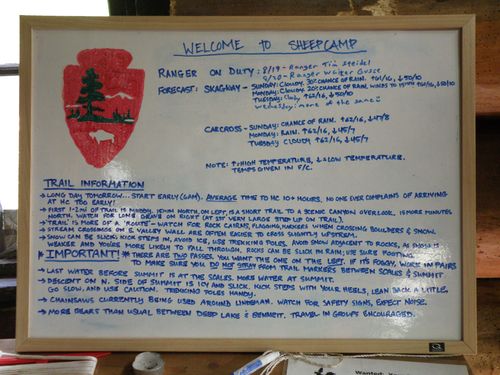 WELCOME TO SHEEPCAMP
RANGER ON DUTY: 8/19 - Ranger Tim Steidel
8/20 - Ranger Walter
FORECAST: SKAGWAY - SUNDAY: CLOUDY. 30% CHANCE OF RAIN. ↑61/16, ↓50/10
MONDAY: CLOUDY. 20% CHANCE OF RAIN, WINDS TO 15MPH ↑61/16, ↓50/10
TUESDAY: ↑62/16, ↓50/10
Wednesday: more of the same
CARCROSS - SUNDAY: CHANCE OF RAIN. ↑62/16, ↓47/8
MONDAY: RAIN. ↑62/16, ↓45/7
TUESDAY: CLOUDY ↑62/16, ↓45/7
NOTE: ↑=HIGH TEMPERATURE, ↓=LOW TEMPERATURE.
TEMPS GIVEN IN F/C.
TRAIL INFORMATION
→ LONG DAY TOMORROW... START EARLY (6AM). AVERAGE TIME TO HC 10+ HOURS. NO ONE EVER COMPLAINS OF ARRIVING
AT HC TOO EARLY!
→ FIRST 1-2MI OF TRAIL IS MUDDY. 15MIN NORTH, ON LEFT, IS A SHORT TRAIL TO A SCENIC CANYON OVERLOOK. 15 MORE MINUTES
NORTH, WATCH FOR LONG GRASS ON RIGHT (AT 1ST VERY LARGE STEP UP ON TRAIL).
→ "TRAIL" IS MORE OF A "ROUTE" - WATCH FOR ROCK CAIRNS, FLAGGING, MARKERS WHEN CROSSING BOULDERS & SNOW.
→ STREAM CROSSINGS ON E. VALLEY WALL ARE OFTEN EASIER TO CROSS SLIGHTLY UPSTREAM.
→ SNOW CAN BE SLICK: KICK STEPS IN, AVOID ICE, USE TREKKING POLES. AVOID SNOW ADJACENT TO ROCKS, AS SNOW IS
WEAKER AND YOU'RE MORE LIKELY TO FALL THROUGH. ROCKS CAN BE SLICK IN RAIN; USE SURE FOOTING.
* IMPORTANT! * THERE ARE TWO PASSES. YOU WANT THE ONE ON THE LEFT. IF IT'S FOGGY, WORK IN PAIRS
TO MAKE SURE YOU DO NOT STRAY FROM TRAIL MARKERS BETWEEN SCALES & SUMMIT.
→ LAST WATER BEFORE SUMMIT IS AT THE SCALES. MORE WATER AT SUMMIT.
→ DESCENT ON N. SIDE OF SUMMIT IS ICY AND SLICK. KICK STEPS WITH YOUR HEELS, LEAN BACK A LITTLE,
GO SLOW, AND USE CAUTION. TREKKING POLES HANDY.
→ CHAINSAWS CURRENTLY BEING USED AROUND LINDEMAN. WATCH FOR SAFETY SIGNS, EXPECT NOISE.
→ MORE BEARS THAN USUAL BETWEEN DEEP LAKE & BENNETT. TRAVEL IN GROUPS ENCOURAGED.
Wanted: